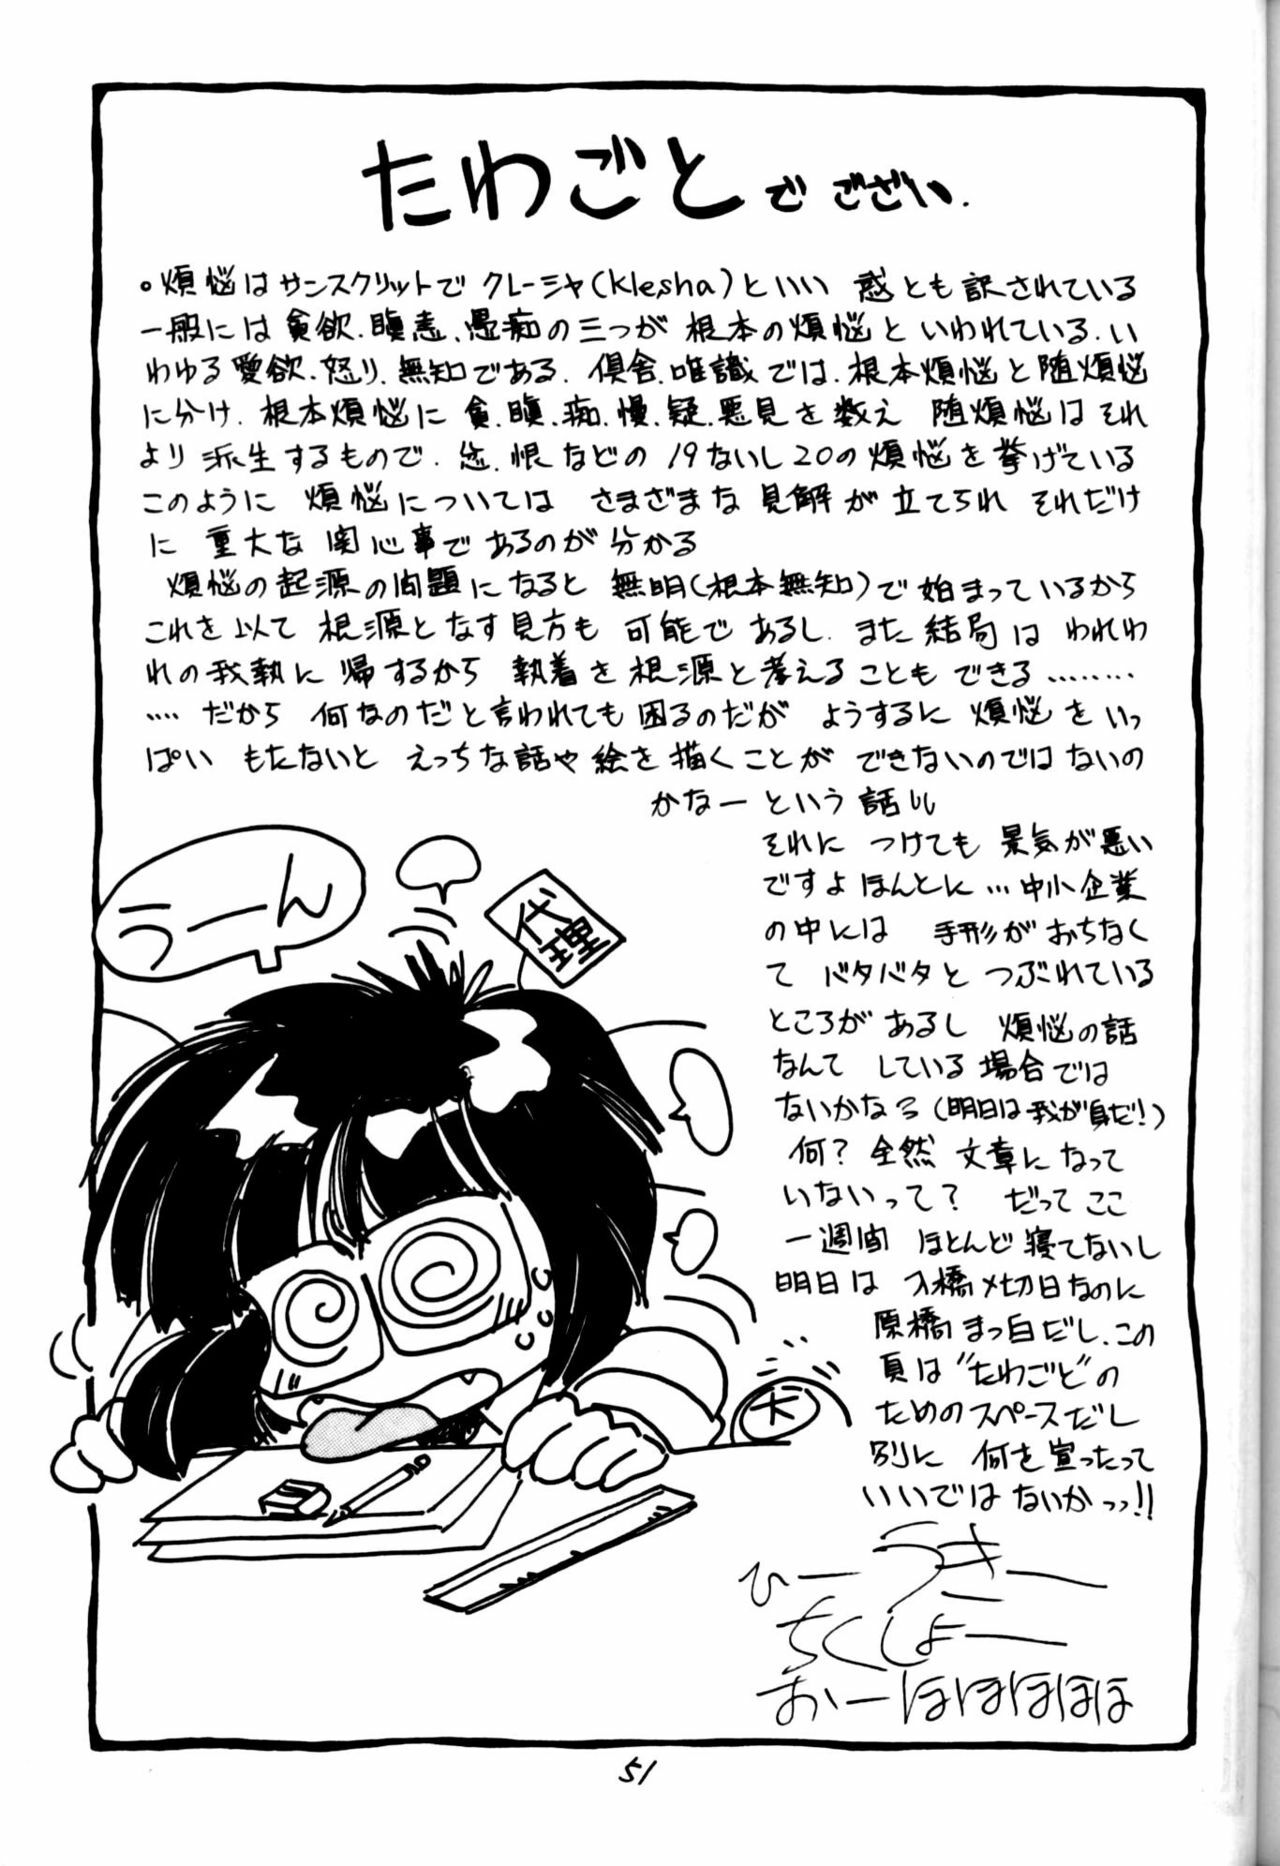 たわごとでござい.
。煩悩はサンスクリットでクレーシャ(klesha)といい 惑とも訳されている
一般には貪欲.瞋恚.愚痴の三つが根本の煩悩といわれている.い
わゆる愛欲.怒り.無知である.倶舎.唯識では.根本煩悩と随煩悩
に分け.根本煩悩に貪.瞋.痴.慢.疑.悪見を数え 随煩悩はそれ
より派生するもので.忿.恨などの19ないし20の煩悩を挙げている
このように 煩悩については さまざまな見解が立てられ それだけ
に 重大な関心事であるのが分かる
煩悩の起源の問題になると 無明(根本無知)で始まっているから
これを以て根源となす見方も可能であるし.また結局はわれわ
れの我執に帰するから 執着を根源と考えることもできる………
…. だから 何なのだと言われても困るのだが ようするに煩悩をいっ
ぱい もたないと えっちな話や絵を描くことが できないのではないの
かなーという話
それに つけても 景気が悪い
ですよほんとに…中小企業
の中には 手形がおちなく
て バタバタと つぶれている
ところがあるし 煩悩の話
なんて している場合では
ないかなろ(明日は我が身だ!)
何?全然 文章になって
いないって? だってここ
一週間 ほとんど寝てないし
明日は 入稿〆切日なのに
原稿まっ白だし.この
頁は"たわごと"の
ためのスペースだし
別に 何を宣ったって
いいではないかっっ!!
ひーうきー
ちくしょー
おーほほほほほ
うーん
代理
大
51